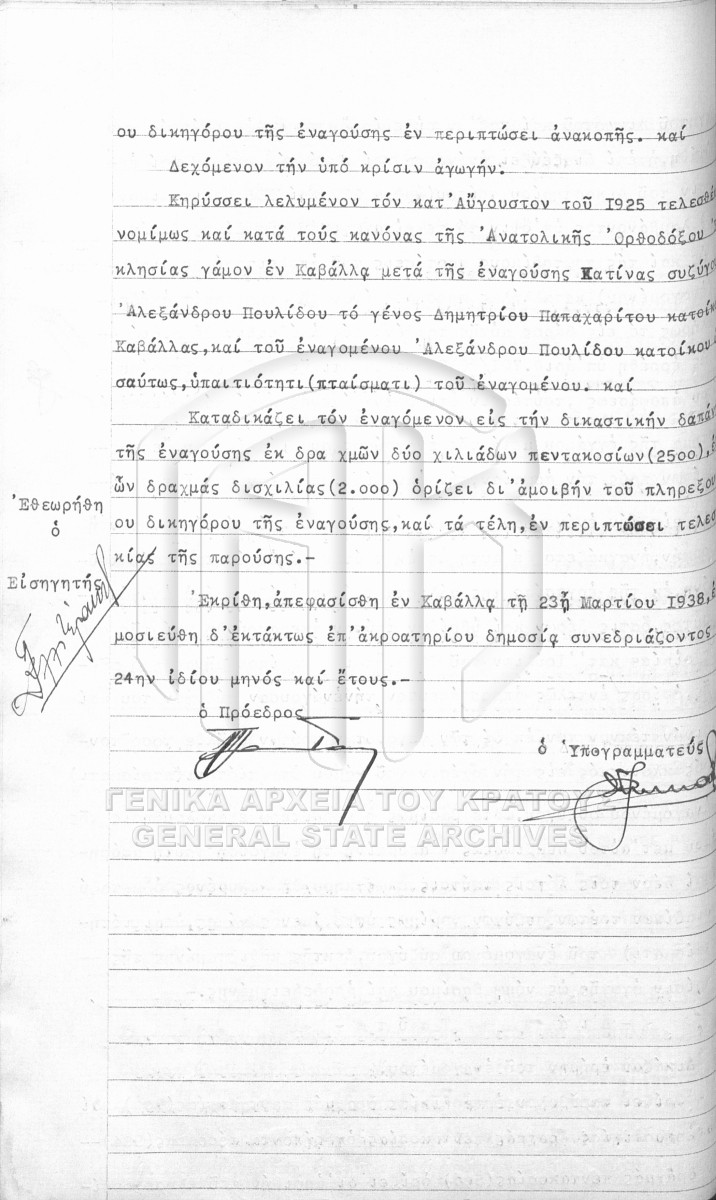 ου δικηγόρου τῆς ἐναγούσης ἐν περιπτώσει ἀνακοπῆς. καί
Δεχόμενον τήν ὑπό κρίσιν ἀγωγήν.
Κηρύσσει λελυμένον τόν κατ'Αὔγουστον τοῦ 1925 τελεσθέ
νομίμως καί κατά τούς κανόνας τῆς Ἀνατολικῆς Ὀρθοδόξου
κλησίας γάμον ἐν Καβάλλᾳ μετά τῆς ἐναγούσης Κατίνας συζύγο
Ἀλεξάνδρου Πουλίδου τό γένος Δημητρίου Παπαχαρίτου κατοίκ
Καβάλλας,καί τοῦ ἐναγομένου Ἀλεξάνδρου Πουλίδου κατοίκου
σαύτως,ὑπαιτιότητι(πταίσματι) τοῦ ἐναγομένου. καί
Καταδικάζει τόν ἐναγόμενον εἰς τήν δικαστικήν δαπάν
τῆς ἐναγούσης ἐκ δρα χμῶν δύο χιλιάδων πεντακοσίων(2500),ἐ
ὧν δραχμάς δισχιλίας(2.000) ὁρίζει δι'ἀμοιβήν τοῦ πληρεξου
ου δικηγόρου τῆς ἐναγούσης,καί τά τέλη,ἐν περιπτώσει τελεσ
κίας τῆς παρούσης.-
Ἐθεωρήθη
ὁ
Εἰσηγητής
Ἐκρίθη,ἀπεφασίσθη ἐν Καβάλλᾳ τῇ 23ῃ Μαρτίου 1938,ἐ
μοσιεύθη δ'ἐκτάκτως ἐπ'ἀκροατηρίου δημοσίᾳ συνεδριάζοντος
24ην ἰδίου μηνός καί ἔτους.-
ὁ Πρόεδρος
ὁ Ὑπογραμματεύς
ΓΕΝΙΚΑ ΑΡΧΕΙΑ ΤΟΥ ΚΡΑΤΟΥΣ
GENERAL STATE ARCHIVES